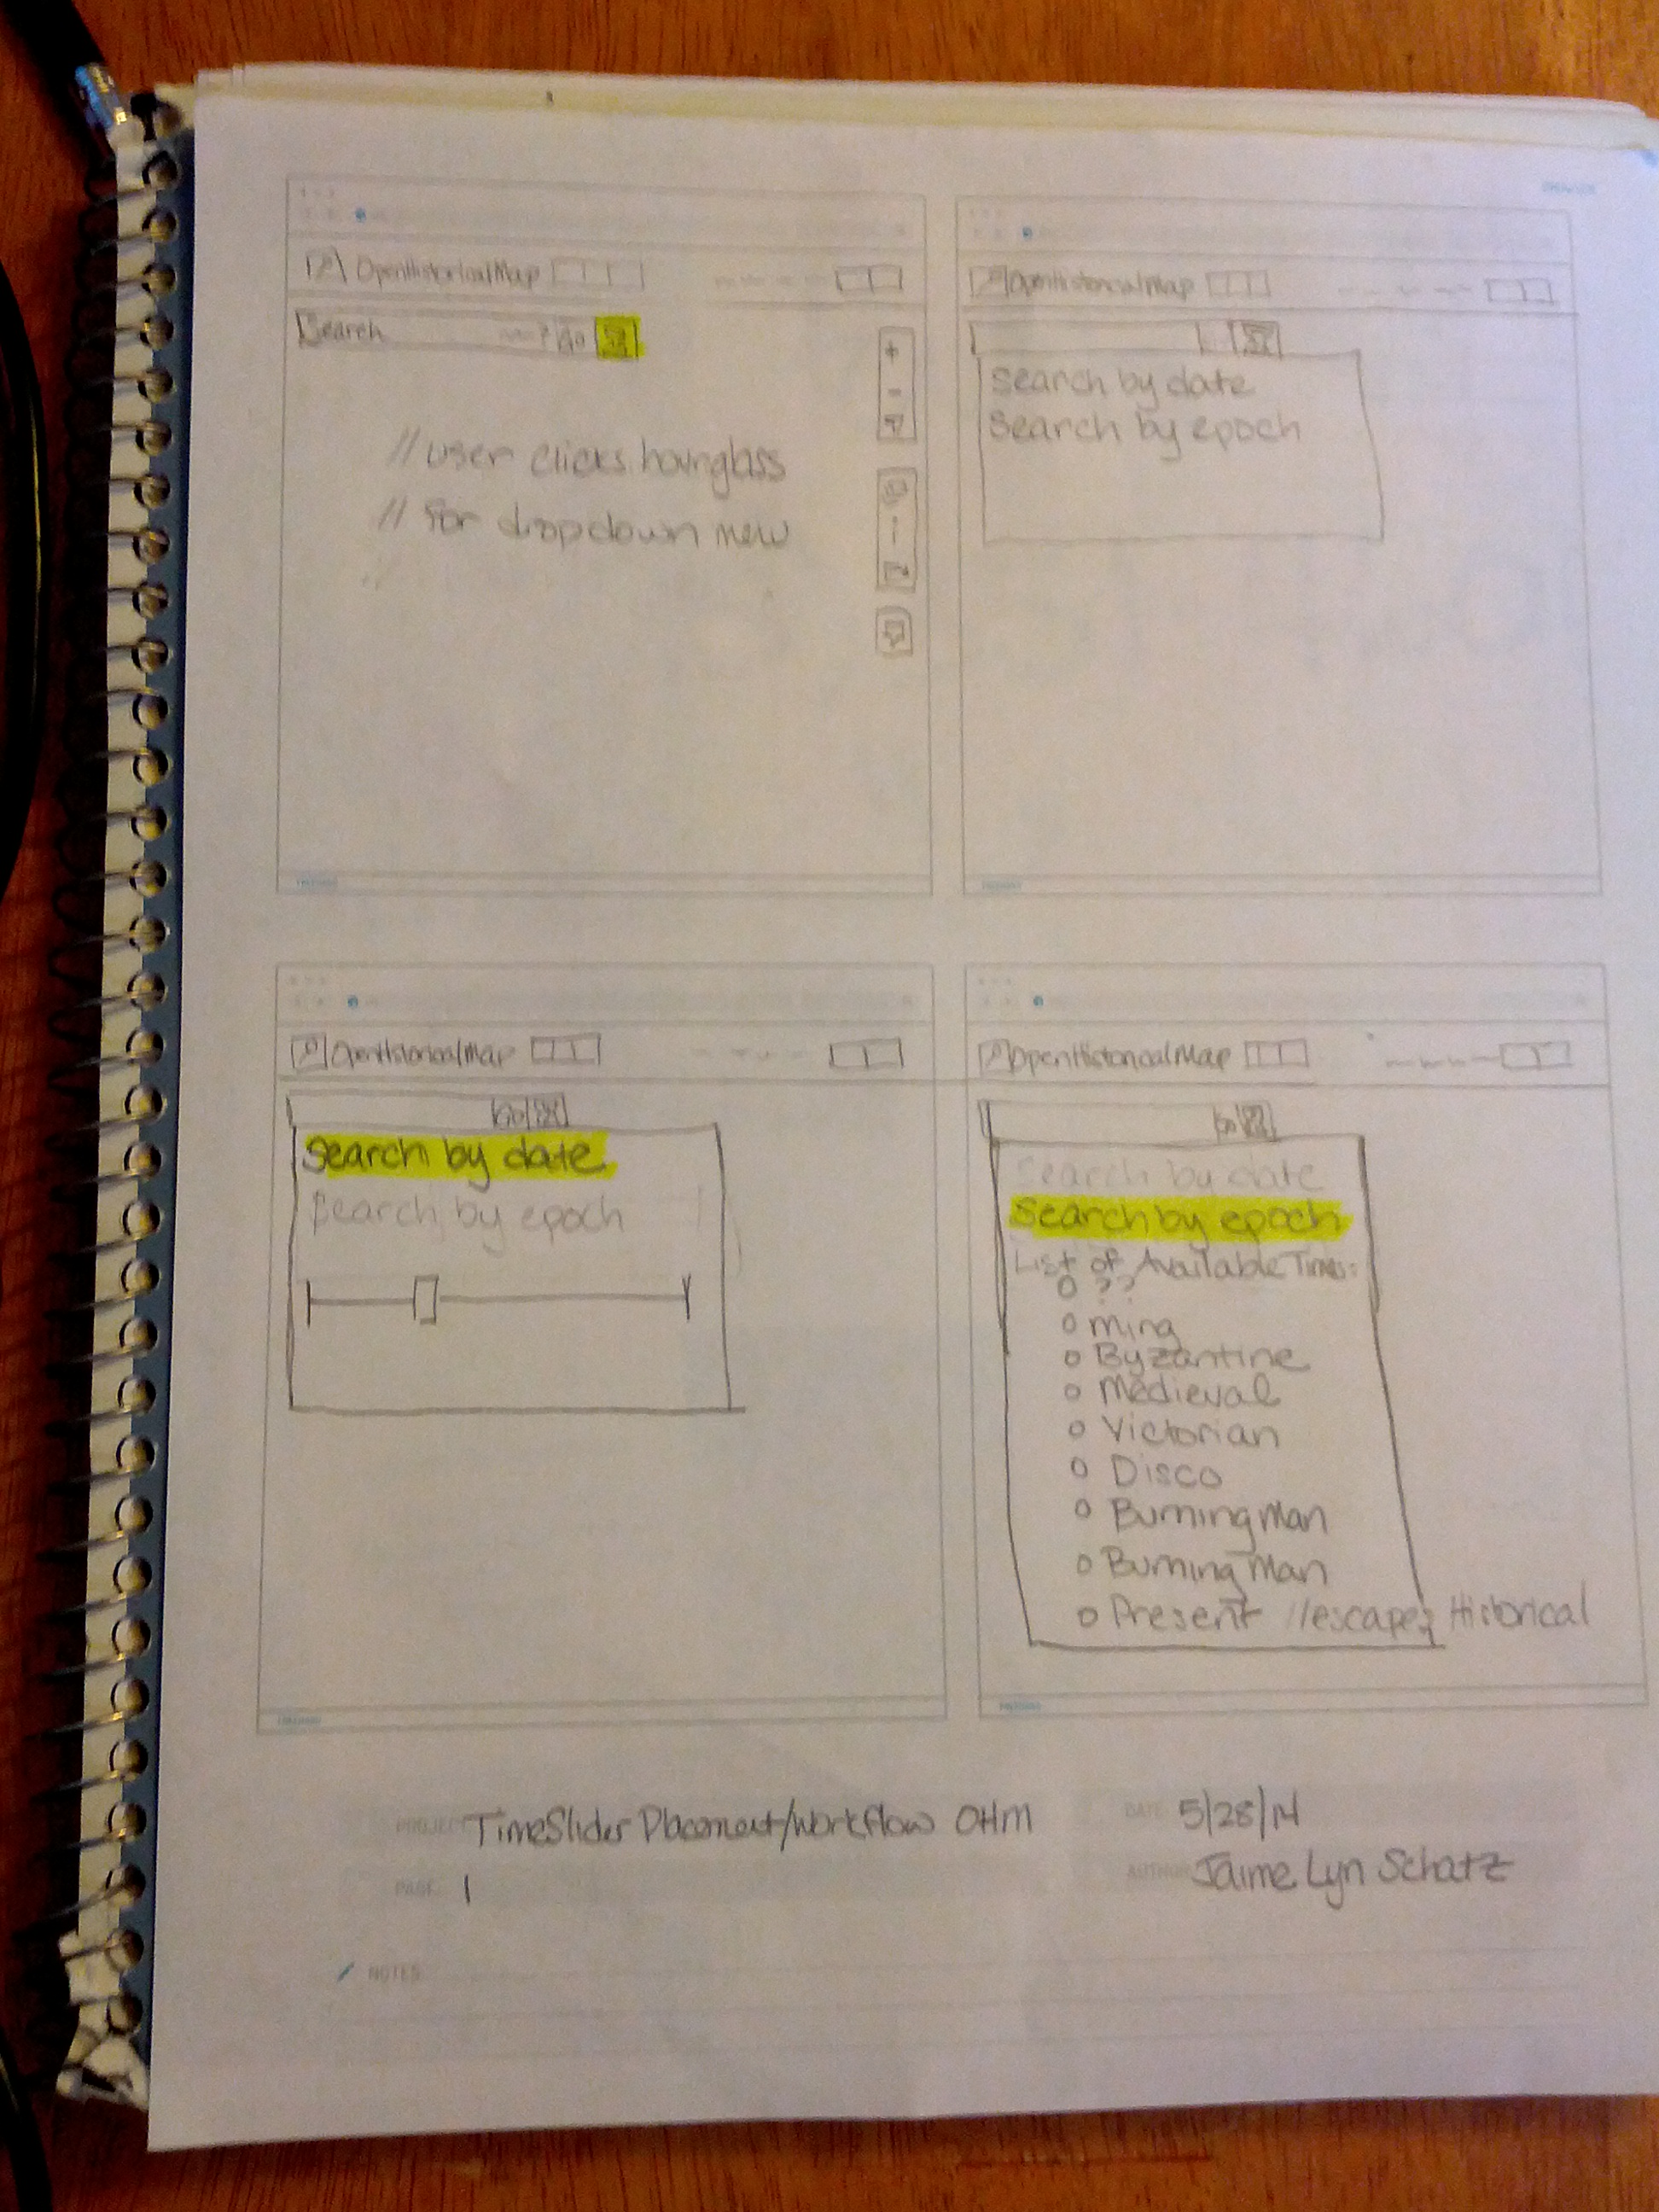 OpenHistoricalMap
Search ? Go
+
-
// user clicks hourglass
// for dropdown menu
OpenHistoricalMap
Search by date
Search by epoch
OpenHistoricalMap
Go
Search by date
Search by epoch
OpenHistoricalMap
Go
Search by date
Search by epoch
List of Available Times:
o ??
o Ming
o Byzantine
o Medieval
o Victorian
o Disco
o Burning Man
o Burning Man
o Present //escapes Historical
PROJECT TimeSlider Placement/Workflow OHM
DATE 5/28/14
PAGE 1
AUTHOR Jaime Lyn Schatz
NOTES